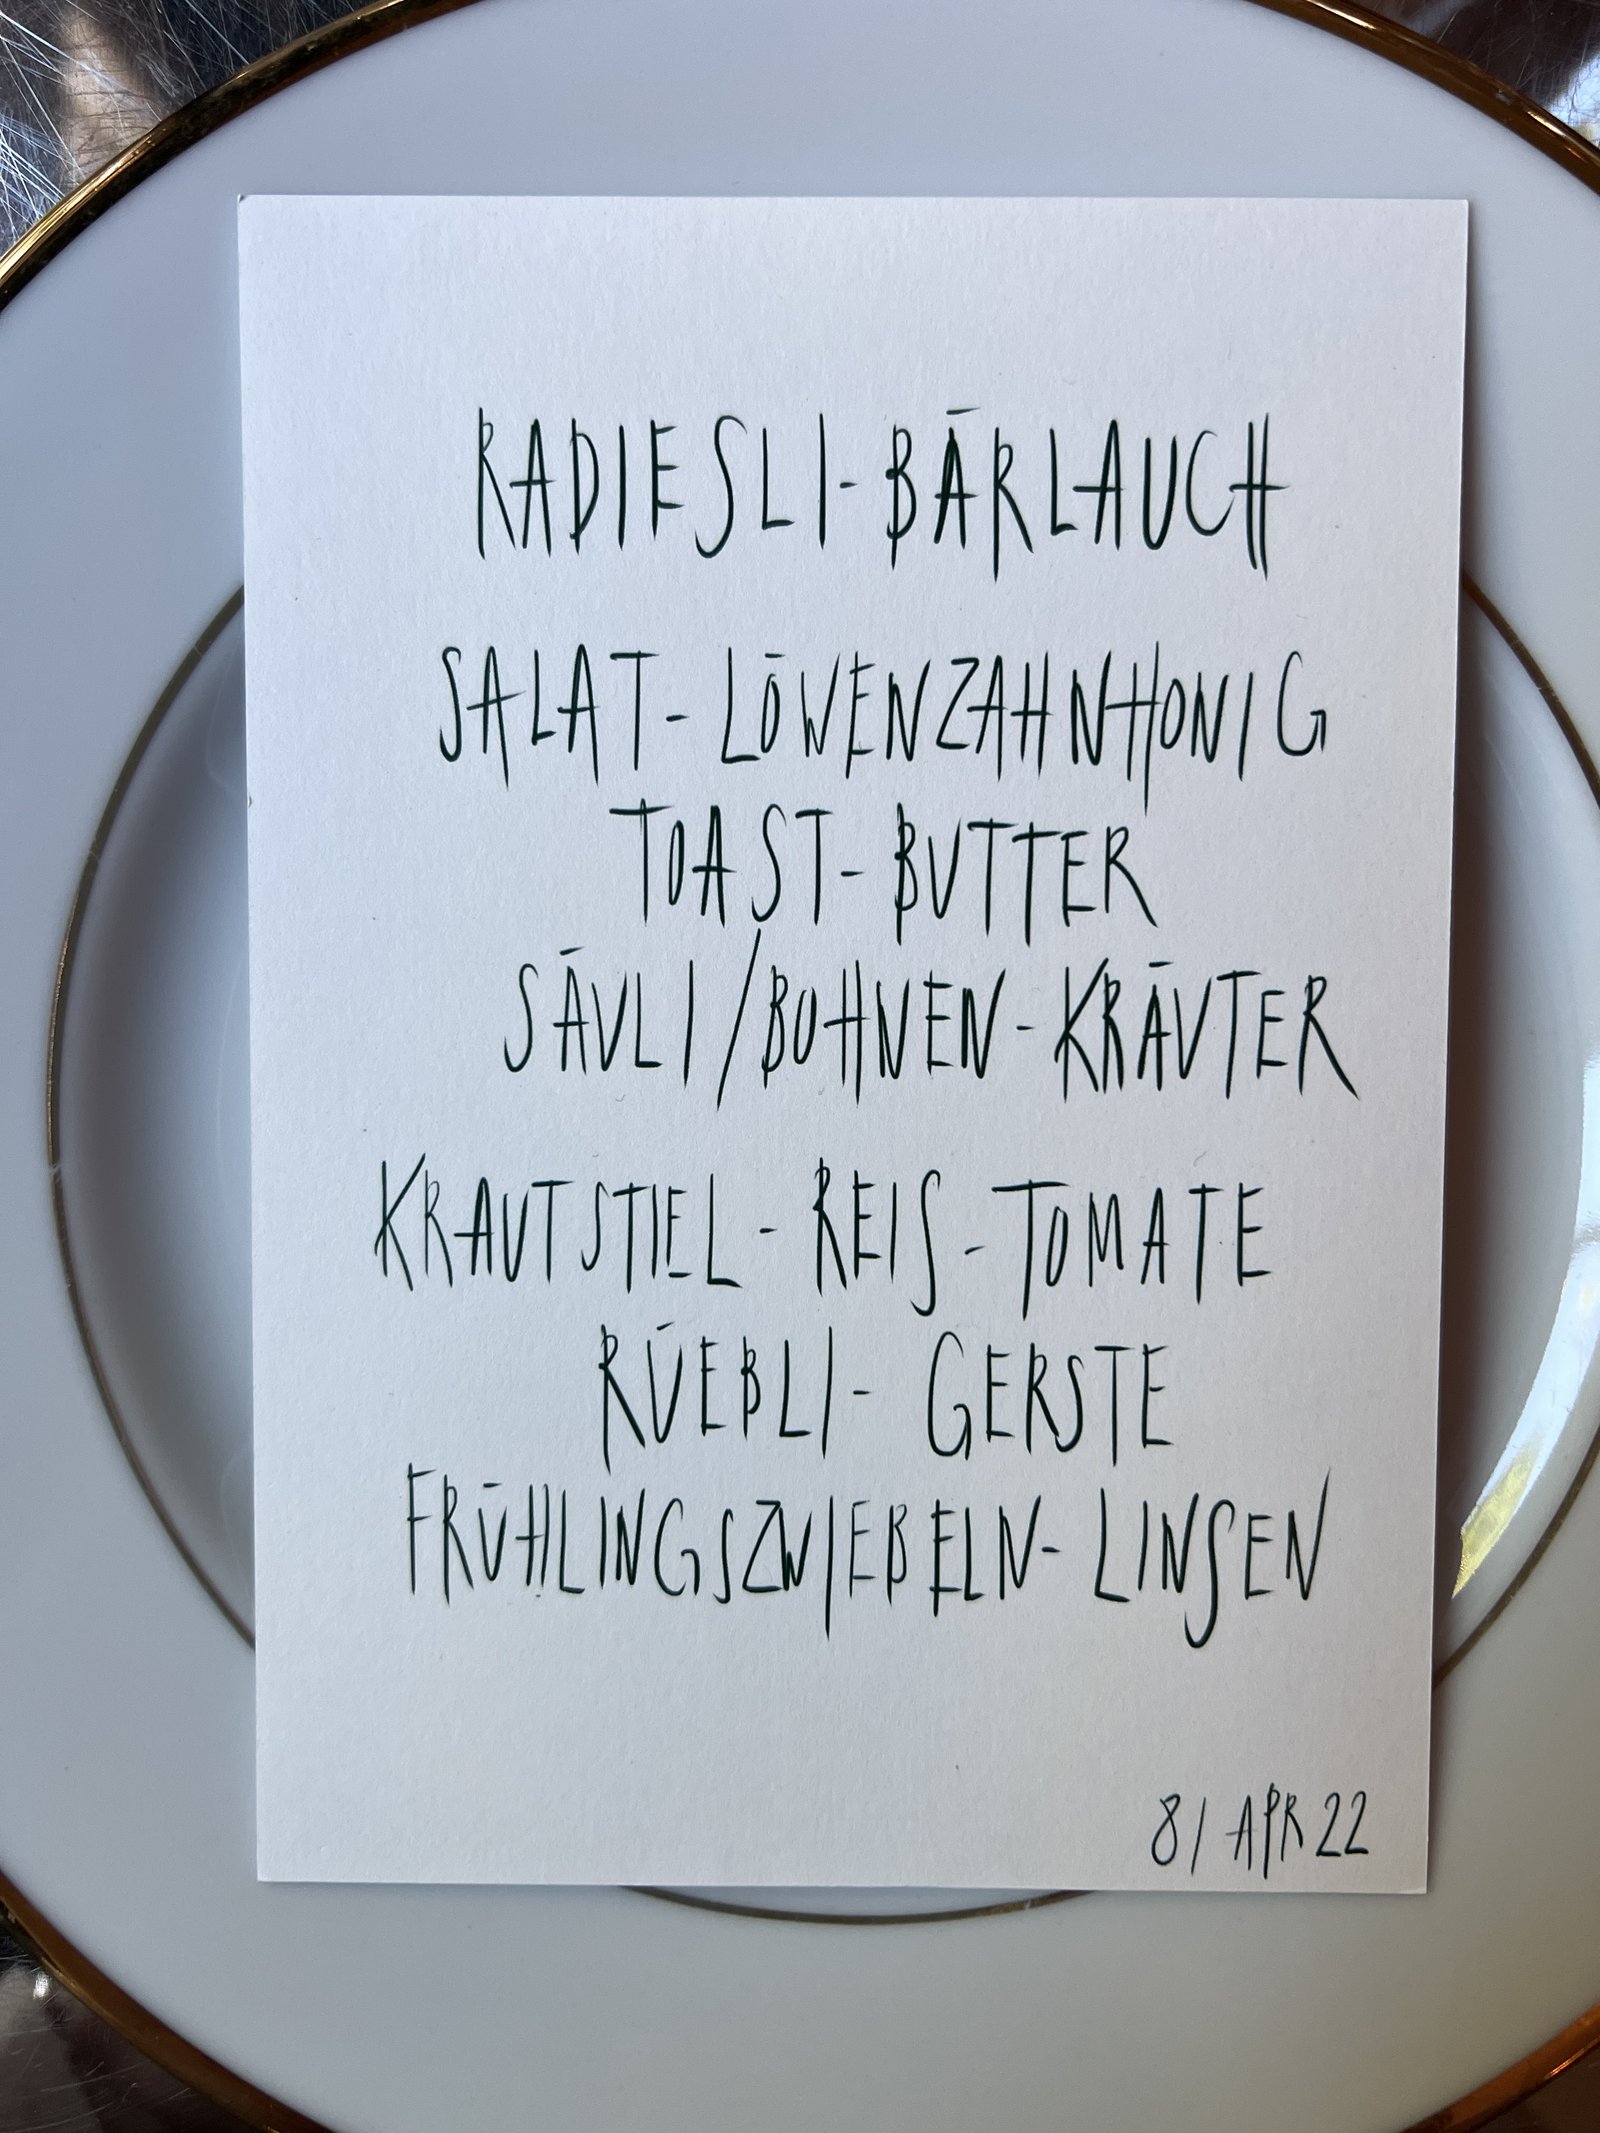 RADIESLI-BÄRLAUCH
SALAT-LÖWENZAHNHONIG
TOAST-BUTTER
SÄULI/BOHNEN-KRÄUTER
KRAUTSTIEL-REIS-TOMATE
RÜEBLI-GERSTE
FRÜHLINGSZWIEBELN-LINSEN
8/APR 22